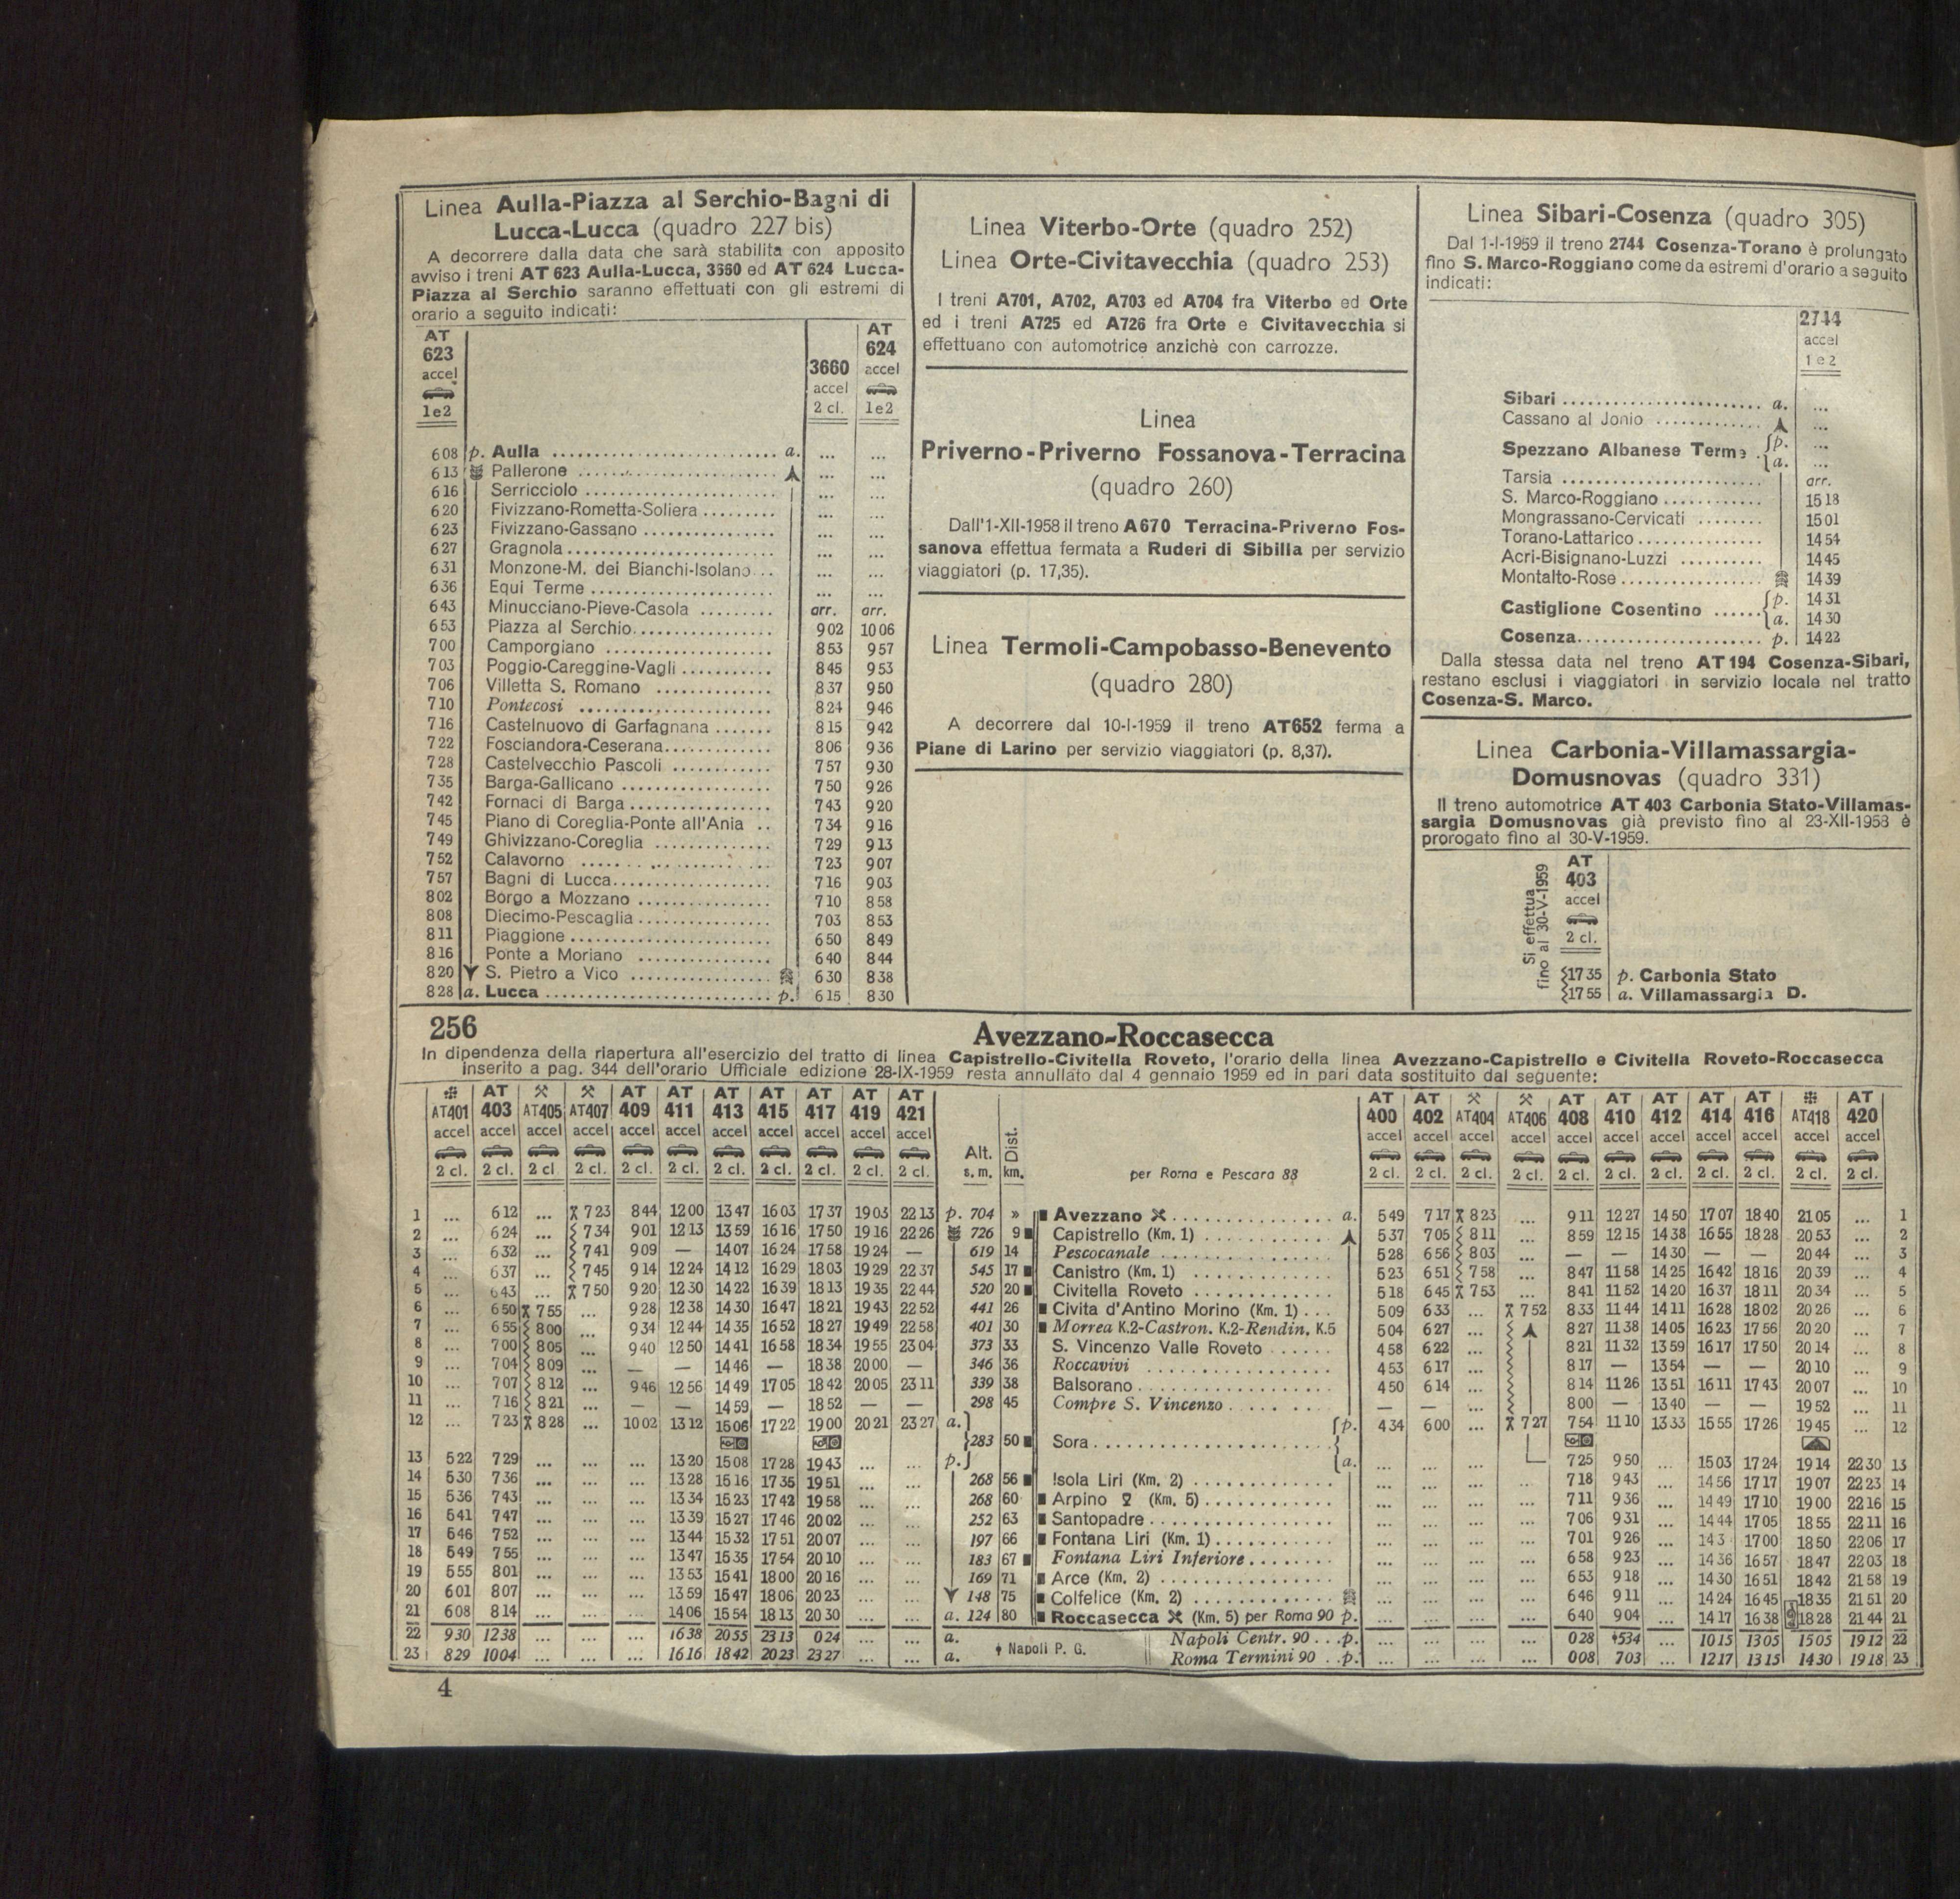 Linea Aulla-Piazza al Serchio-Bagni di
Lucca-Lucca (quadro 227 bis)
A decorrere dalla data che sarà stabilita con apposito
avviso i treni AT 623 Aulla-Lucca, 3660 ed AT 624 Lucca-
Piazza al Serchio saranno effettuati con gli estremi di
orario a seguito indicati:
AT 623 accel 1e2 3660 accel 2 cl. AT 624 accel 1e2
608 p. Aulla a. ... ...
613 Pallerone ... ...
616 Serricciolo ... ...
620 Fivizzano-Rometta-Soliera ... ...
623 Fivizzano-Gassano ... ...
627 Gragnola ... ...
631 Monzone-M. dei Bianchi-Isolano ... ...
636 Equi Terme ... ...
643 Minucciano-Pieve-Casola arr. arr.
653 Piazza al Serchio 902 1006
700 Camporgiano 853 957
703 Poggio-Careggine-Vagli 845 953
706 Villetta S. Romano 837 950
710 Pontecosi 824 946
716 Castelnuovo di Garfagnana 815 942
722 Fosciandora-Ceserana 806 936
728 Castelvecchio Pascoli 757 930
735 Barga-Gallicano 750 926
742 Fornaci di Barga 743 920
745 Piano di Coreglia-Ponte all'Ania 734 916
749 Ghivizzano-Coreglia 729 913
752 Calavorno 723 907
757 Bagni di Lucca 716 903
802 Borgo a Mozzano 710 858
808 Diecimo-Pescaglia 703 853
811 Piaggione 650 849
816 Ponte a Moriano 640 844
820 S. Pietro a Vico 630 838
828 a. Lucca p. 615 830
Linea Viterbo-Orte (quadro 252)
Linea Orte-Civitavecchia (quadro 253)
I treni A701, A702, A703 ed A704 fra Viterbo ed Orte
ed i treni A725 ed A726 fra Orte e Civitavecchia si
effettuano con automotrice anzichè con carrozze.
Linea
Priverno-Priverno Fossanova-Terracina
(quadro 260)
Dall'1-XII-1958 il treno A670 Terracina-Priverno Fos-
sanova effettua fermata a Ruderi di Sibilla per servizio
viaggiatori (p. 17,35).
Linea Termoli-Campobasso-Benevento
(quadro 280)
A decorrere dal 10-I-1959 il treno AT652 ferma a
Piane di Larino per servizio viaggiatori (p. 8,37).
Linea Sibari-Cosenza (quadro 305)
Dal 1-I-1959 il treno 2744 Cosenza-Torano è prolungato
fino S. Marco-Roggiano come da estremi d'orario a seguito
indicati:
2744
accel
1 e 2
Sibari a. ...
Cassano al Jonio ...
Spezzano Albanese Terme p. ...
a. ...
Tarsia arr.
S. Marco-Roggiano 1518
Mongrassano-Cervicati 1501
Torano-Lattarico 1454
Acri-Bisignano-Luzzi 1445
Montalto-Rose 1439
Castiglione Cosentino p. 1431
a. 1430
Cosenza p. 1422
Dalla stessa data nel treno AT194 Cosenza-Sibari,
restano esclusi i viaggiatori in servizio locale nel tratto
Cosenza-S. Marco.
Linea Carbonia-Villamassargia-
Domusnovas (quadro 331)
Il treno automotrice AT 403 Carbonia Stato-Villamas-
sargia Domusnovas già previsto fino al 23-XII-1958 è
prorogato fino al 30-V-1959.
Si effettua
fino al 30-V-1959
AT
403
accel
2 cl.
1735 p. Carbonia Stato
1755 a. Villamassargia D.
256 Avezzano-Roccasecca
In dipendenza della riapertura all'esercizio del tratto di linea Capistrello-Civitella Roveto, l'orario della linea Avezzano-Capistrello e Civitella Roveto-Roccasecca
inserito a pag. 344 dell'orario Ufficiale edizione 28-IX-1959 resta annullato dal 4 gennaio 1959 ed in pari data sostituito dal seguente:
AT401 AT 403 AT405 AT407 AT 409 AT 411 AT 413 AT 415 AT 417 AT 419 AT 421 AT 400 AT 402 AT404 AT406 AT 408 AT 410 AT 412 AT 414 AT 416 AT418 AT 420
accel accel accel accel accel accel accel accel accel accel accel accel accel accel accel accel accel accel accel accel accel accel
2 cl. 2 cl. 2 cl 2 cl. 2 cl. 2 cl. 2 cl. 2 cl. 2 cl. 2 cl. 2 cl. Alt. s. m. Dist. km. per Roma e Pescara 88 2 cl. 2 cl. 2 cl. 2 cl. 2 cl. 2 cl. 2 cl. 2 cl. 2 cl. 2 cl. 2 cl.
1 ... 612 ... 723 844 1200 1347 1603 1737 1903 2213 p. 704 » Avezzano a. 549 717 823 ... 911 1227 1450 1707 1840 2105 ... 1
2 ... 624 ... 734 901 1213 1359 1616 1750 1916 2226 726 9 Capistrello (Km. 1) 537 705 811 ... 859 1215 1438 1655 1828 2053 ... 2
3 ... 632 ... 741 909 — 1407 1624 1758 1924 — 619 14 Pescocanale 528 656 803 ... — — 1430 — — 2044 ... 3
4 ... 637 ... 745 914 1224 1412 1629 1803 1929 2237 545 17 Canistro (Km. 1) 523 651 758 ... 847 1158 1425 1642 1816 2039 ... 4
5 ... 643 ... 750 920 1230 1422 1639 1813 1935 2244 520 20 Civitella Roveto 518 645 753 ... 841 1152 1420 1637 1811 2034 ... 5
6 ... 650 755 ... 928 1238 1430 1647 1821 1943 2252 441 26 Civita d'Antino Morino (Km. 1) 509 633 ... 752 833 1144 1411 1628 1802 2026 ... 6
7 ... 655 800 ... 934 1244 1435 1652 1827 1949 2258 401 30 Morrea K.2-Castron. K.2-Rendin. K.5 504 627 ... 827 1138 1405 1623 1756 2020 ... 7
8 ... 700 805 ... 940 1250 1441 1658 1834 1955 2304 373 33 S. Vincenzo Valle Roveto 458 622 ... 821 1132 1359 1617 1750 2014 ... 8
9 ... 704 809 ... — — 1446 — 1838 2000 — 346 36 Roccavivi 453 617 ... 817 — 1354 — — 2010 ... 9
10 ... 707 812 ... 946 1256 1449 1705 1842 2005 2311 339 38 Balsorano 450 614 ... 814 1126 1351 1611 1743 2007 ... 10
11 ... 716 821 ... — — 1459 — 1852 — — 298 45 Compre S. Vincenzo — — ... 800 — 1340 — — 1952 ... 11
12 ... 723 828 ... 1002 1312 1506 1722 1900 2021 2327 a. p. 434 600 ... 727 754 1110 1333 1555 1726 1945 ... 12
283 50 Sora
13 522 729 ... ... ... 1320 1508 1728 1943 ... ... p. a. ... ... ... 725 950 ... 1503 1724 1914 2230 13
14 530 736 ... ... ... 1328 1516 1735 1951 ... ... 268 56 Isola Liri (Km. 2) ... ... ... ... 718 943 1456 1717 1907 2223 14
15 536 743 ... ... ... 1334 1523 1742 1958 ... ... 268 60 Arpino (Km. 5) ... ... ... ... 711 936 ... 1449 1710 1900 2216 15
16 541 747 ... ... ... 1339 1527 1746 2002 ... ... 252 63 Santopadre ... ... ... ... 706 931 ... 1444 1705 1855 2211 16
17 546 752 ... ... ... 1344 1532 1751 2007 ... ... 197 66 Fontana Liri (Km. 1) ... ... ... ... 701 926 ... 143 1700 1850 2206 17
18 549 755 ... ... ... 1347 1535 1754 2010 ... ... 183 67 Fontana Liri Inferiore ... ... ... ... 658 923 ... 1436 1657 1847 2203 18
19 555 801 ... ... ... 1353 1541 1800 2016 ... ... 169 71 Arce (Km. 2) ... ... ... ... 653 918 ... 1430 1651 1842 2158 19
20 601 807 ... ... ... 1359 1547 1806 2023 ... ... 148 75 Colfelice (Km. 2) ... ... ... ... 646 911 ... 1424 1645 1835 2151 20
21 608 814 ... ... ... 1406 1554 1813 2030 ... ... a. 124 80 Roccasecca (Km. 5) per Roma 90 p. ... ... ... ... 640 904 ... 1417 1638 1828 2144 21
22 930 1238 ... ... ... 1638 2055 2313 024 ... ... a. Napoli P. G. Napoli Centr. 90 p. ... ... ... ... 028 534 ... 1015 1305 1505 1912 22
23 829 1004 ... ... ... 1616 1842 2023 2327 ... ... a. Roma Termini 90 p. ... ... ... ... 008 703 ... 1217 1315 1430 1918 23
4